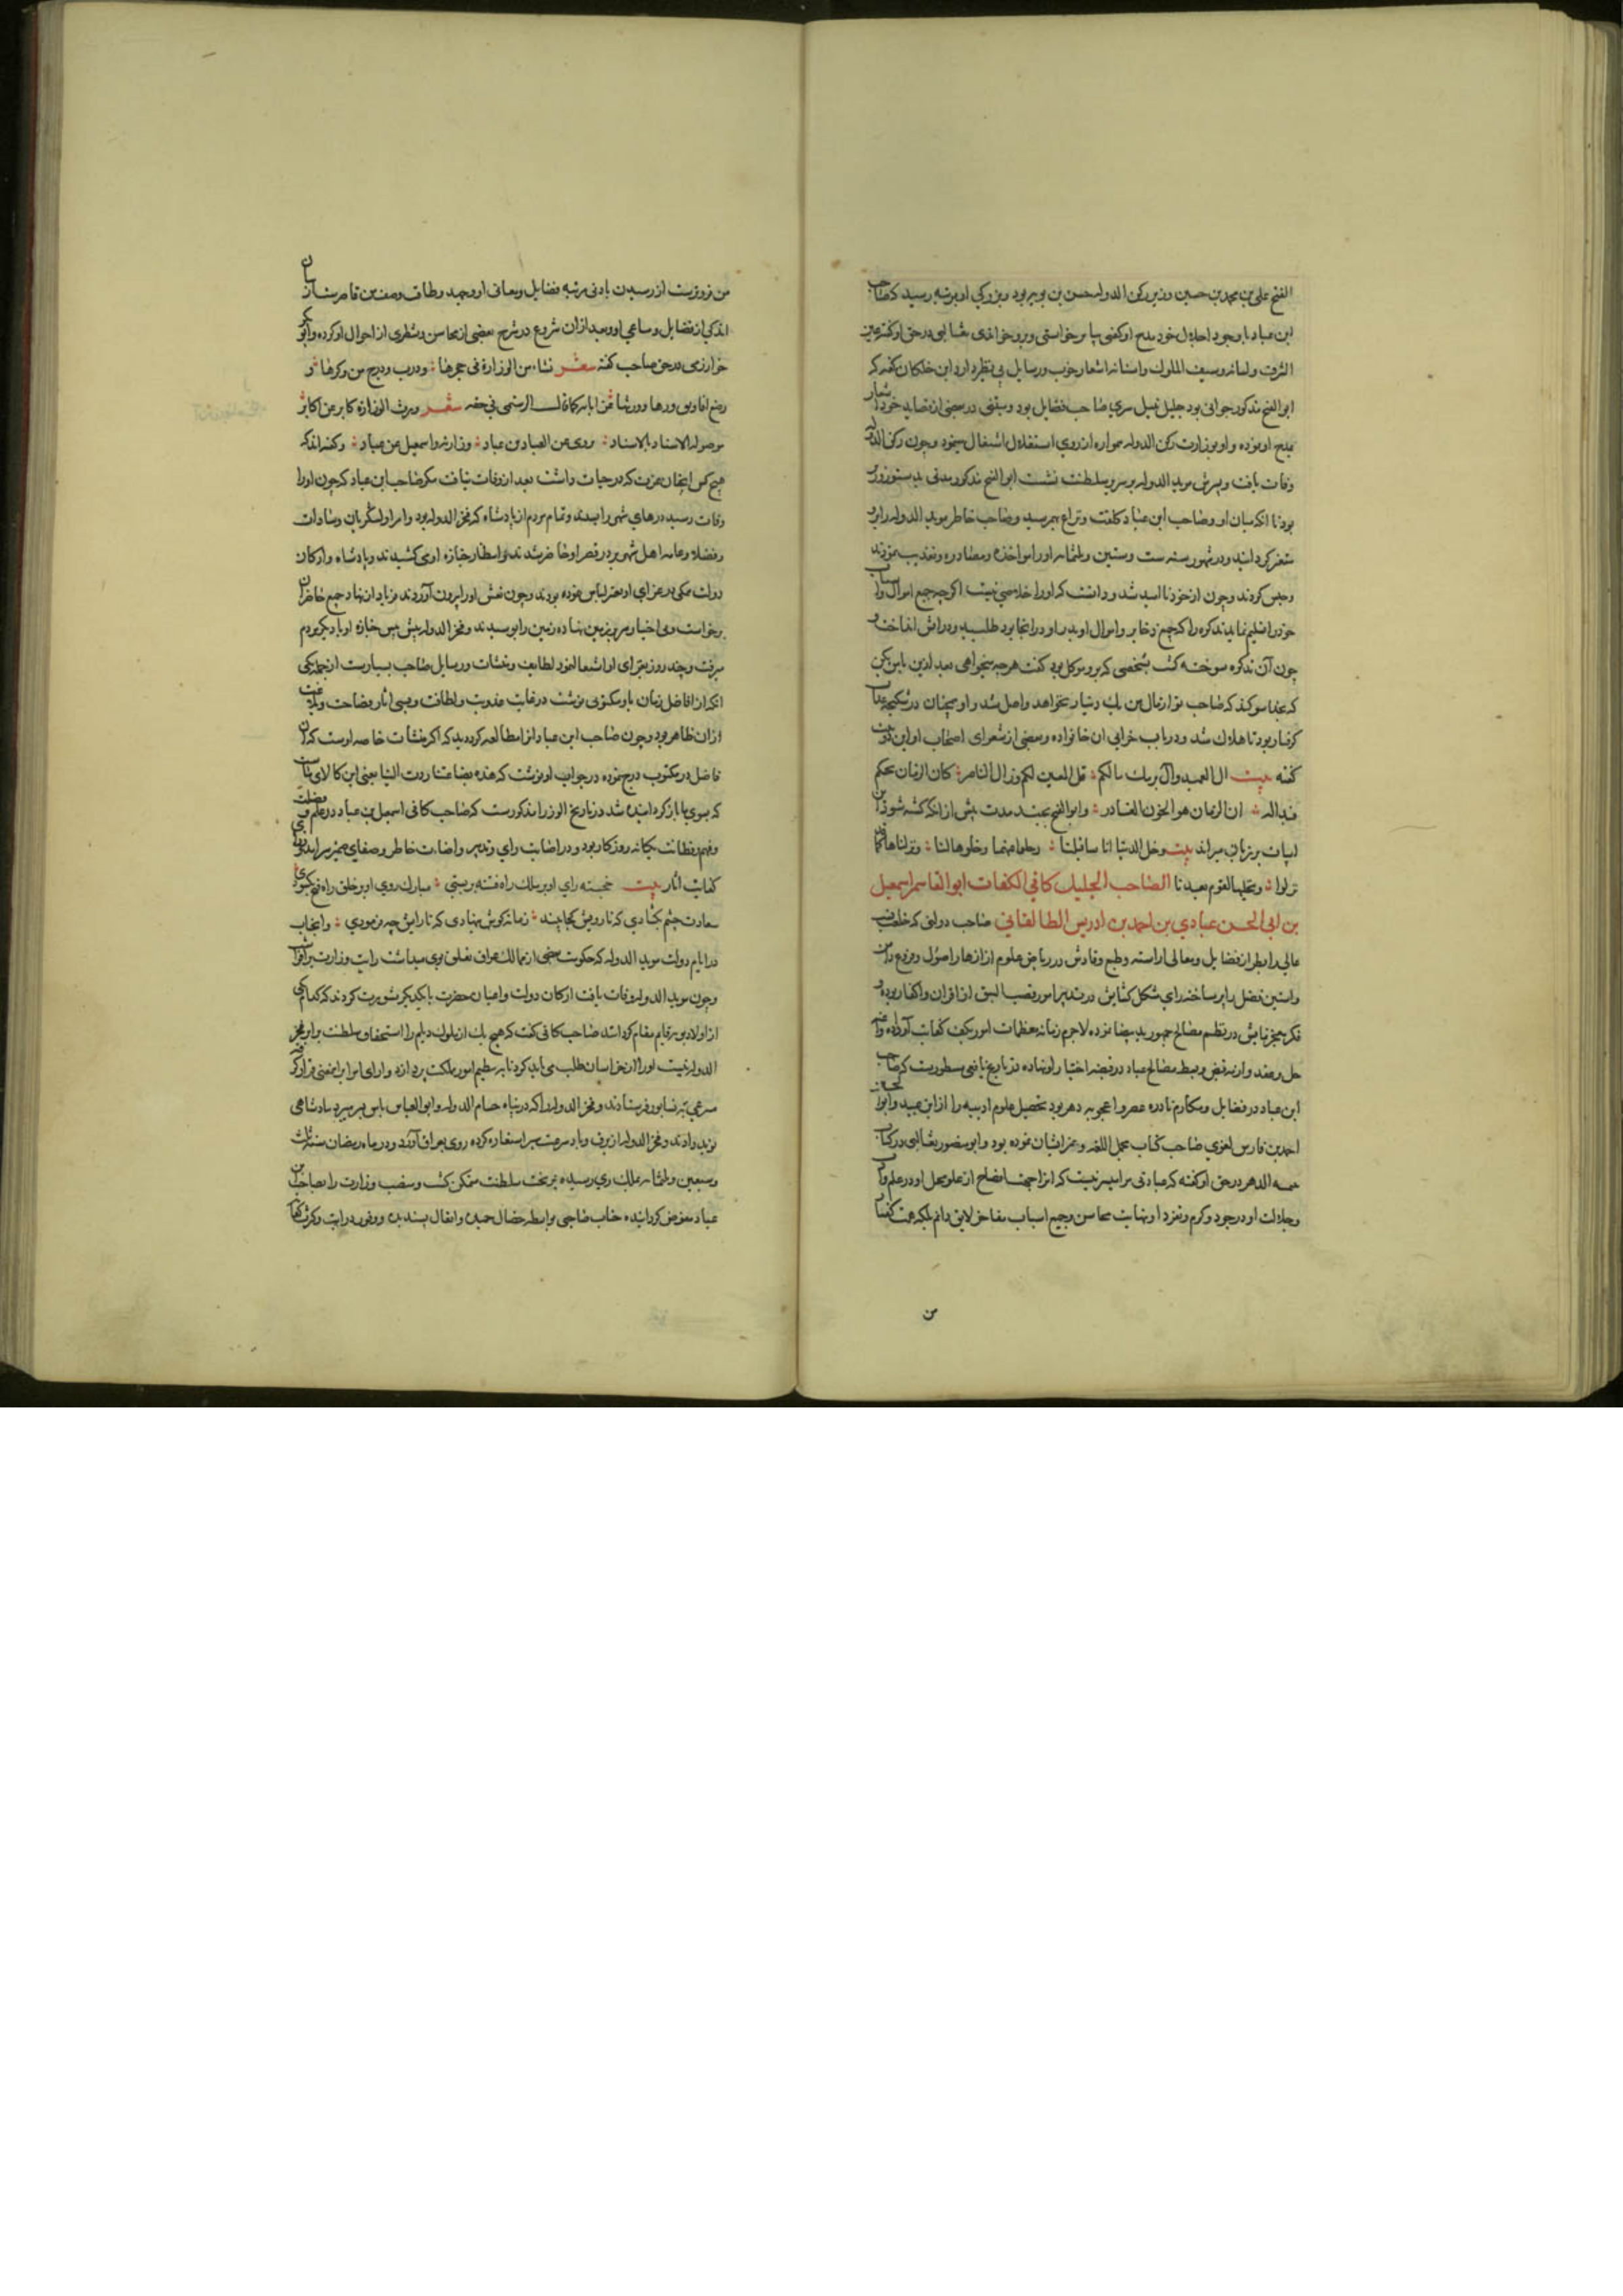 الفتح علی بن محمد بن حسین وزیر رکن الدوله حسن بن بویه بود و بزرگی او بمرتبه رسید که صاحب
ابن عباد با وجود اجلال خود مدح او گفتی بپا برخاستی و برو خواندی ثعالبی در حق او گفته عین
الشرق و لسانه و سیف الملوک و اسنانه اشعار خوب و رسایل بی نظیر دارد ابن خلکان گفته که
ابو الفتح مذکور جوانی بود جلیل نبیل سری صاحب فضایل بود و متنبی در بعضی از قصاید خود اشعار
مدح او نموده و او بوزارت رکن الدوله همواره از روی استقلال اشتغال مینمود و چون رکن الدوله
وفات یافت و پسرش موید الدوله بر سریر سلطنت نشست ابو الفتح مذکور مدتی بدستور وزیر
بود تا آنکه میان او و صاحب ابن عباد کلفت و نزاع بهم رسید و صاحب خاطر موید الدوله را برو
متغیر گردانید و در شهور سنه ست و ستین و ثلثمایه او را مواخذه و مصادره و تعذیب نمودند
و حبس کردند و چون از خود ناامید شد و دانست که او را خلاصی نیست اگر چه جمیع اموال و اسباب
خود را تسلیم نماید تذکره را که جمیع ذخایر و اموال او و پدر او در آنجا بود طلبید و در آتش انداخت و
چون آن تذکره سوخته گشت بشخصی که برو موکل بود گفت هر چه میخواهی بعد ازین با من بکن
که بخدا سوگند که صاحب تو از مال من یک دینار نخواهد واصل شد و او همچنان در شکنجه عذاب
گرفتار بود تا هلاک شد و در باب خرابی آن خانواده بعضی از شعرای اصحاب او این دو بیت
گفته بیت ال العمید و آل برمک مالکم قل المعین لکم و زال الناصر کان الزمان یحبکم
فبدا له ان الزمان هو الخون الغادر و ابو الفتح بچند مدت پیش از آنکه کشته شود این
ابیات بر زبان میراند بیت دخل الدنیا انا سا قبلنا رحلوا عنها و خلوها لنا و نزلناها کما قد
نزلوا و نخلیها لقوم بعدنا الصاحب الجلیل کافی الکفات ابو القاسم اسمعیل
بن ابی الحسن عبادی بن احمد بن ادریس الطالقانی صاحب دولتی که خلعت
عالی را بطراز فضایل و معالی اراسته و طبع وقادش در ریاض علوم از ازهار اصول و فروع دامن
و استین فضل را پر ساخته رای مشکل گشایش در تدبیر امور قصب السبق از اقران و اکفا ربوده و
فکر معجز نمایش در نظم مصالح جمهور ید بیضا نموده لاجرم زمانه عظمات امور بکف کفایت او داده و
حل و عقد و ازمه قبض و بسط مصالح عباد در قبضه اختیار او نهاده در تاریخ یافعی مسطورست که صاحب
ابن عباد در فضایل و مکارم نادره عصر و اعجوبه دهر بود تحصیل علوم ادبیه را از ابن عمید و ابو الحسین
احمد بن فارس لغوی صاحب کتاب مجمل اللغه و غیر ایشان نموده بود و ابو منصور ثعالبی در کتاب
یتیمه الدهر در حق او گفته که عبادتی مرا میسر نیست که از اجهة افصاح از علو محل او در علم و اداب
و جلالت او در جود و کرم و تفرد او بنهایت محاسن و جمیع اسباب مفاخر لایق دانم بلکه همت گفتار
من
من فروترست از رسیدن بادنی مرتبه فضایل و معانی او و جهد و طاقت وصف من قاصرست از بیان
اندکی از فضایل و مساعی او و بعد ازان شروع در شرح بعضی از محاسن و شطری از احوال او کرده و ابو بکر
خوارزمی در حق صاحب گفته شعر نشاء من الوزارة فی حجرها و درب و درج من وکرها و
رضع افاویق درها و ورثها عن ابایه کما قال الرستمی فی حقه شعر ورث الوزارة کابرا عن کابر
موصولة الاسناد بالاسناد یروی عن العباس عباد وزارته و اسمعیل عن عباد و گفته اند که
هیچکس ایچنان عزت که در حیات داشت بعد از وفات نیافت مگر صاحب ابن عباد که چون او را
وفات رسید درهای شهر را بستند و تمام مردم از پادشاه که فخر الدوله بود و امرا و لشکریان و سادات
و فضلا و عامه اهل شهر بر در قصر او حاضر شدند و انتظار جنازه او می کشیدند و پادشاه و ارکان
دولت همگی در عزای او تغییر لباس نموده بودند و چون نعش او را بیرون آوردند فریاد از نهاد جمیع حاضران
برخاست و بی اختیار سر بر زمین نهاده زمین را بوسیدند و فخر الدوله پیش پیش جنازه او با دیگر مردم
میرفت و چند روز بعزای او اشتغال نمود لطایف و منشات و رسایل صاحب بسیارست از جمله یکی
آنکه از افاضل زمان باو مکتوبی نوشت در غایت عذوبت و لطافت و بسی آثار فصاحت و بلاغت
ازان ظاهر بود و چون صاحب ابن عباد انرا مطالعه کرد دید که اکثر منشات خاصه اوست که آن
فاضل در مکتوب درج نموده در جواب او نوشت که هذه بضاعتنا ردت الینا یعنی این کالای ماست
که بسوی ما باز گردانیده شد در تاریخ الوزرا مذکورست که صاحب کافی اسمعیل بن عباد در علم و فضیلت
و فهم و فطانت یگانه روزگار بود و در اصابت رای و تدبیر و اضاءت خاطر و صفای ضمیر
کفایت آثار بیت خجسته رای او بر ملک راه فتنه بربستی مبارک روی او بر خلق راه فتح بگشودی
سعادت چشم بگشادی که تا رویش کجا بیند زمانه گوش بنهادی که تا رایش چه فرمودی و آنجناب
در ایام دولت موید الدوله که حکومت بعضی از ممالک عراق تعلق بوی میداشت رایت وزارت برافراشت
و چون موید الدوله وفات یافت ارکان دولت و اعیان حضرت با یکدیگر مشورت کردند که کدام کس
از اولاد بویه قایم مقام گردانند صاحب کافی گفت که هیچ یک از ملوک دیلم را استحقاق سلطنت برابر فخر
الدوله نیست او را از خراسان طلب می باید کرد تا بتنظیم امور مملکت پردازد و ارای امرا بر اینمعنی قرار گرفته
مسرعی به نیشابور فرستادند و فخر الدوله را که در پناه حسام الدوله و ابو العباس تاش بسر میبرد بپادشاهی
نوید دادند و فخر الدوله از برق و باد سرعت سیر استعاره کرده روی بعراق آورد و در ماه رمضان سنه ثلث
و سبعین و ثلثمایه بملک ری رسیده بر تخت سلطنت متمکن گشت و منصب وزارت را بصاحب بن
عباد مفوض گردانیده جناب صاحبی بواسطه خصال حمیده و افعال پسندیده و وفور درایت و کثرت کفایت